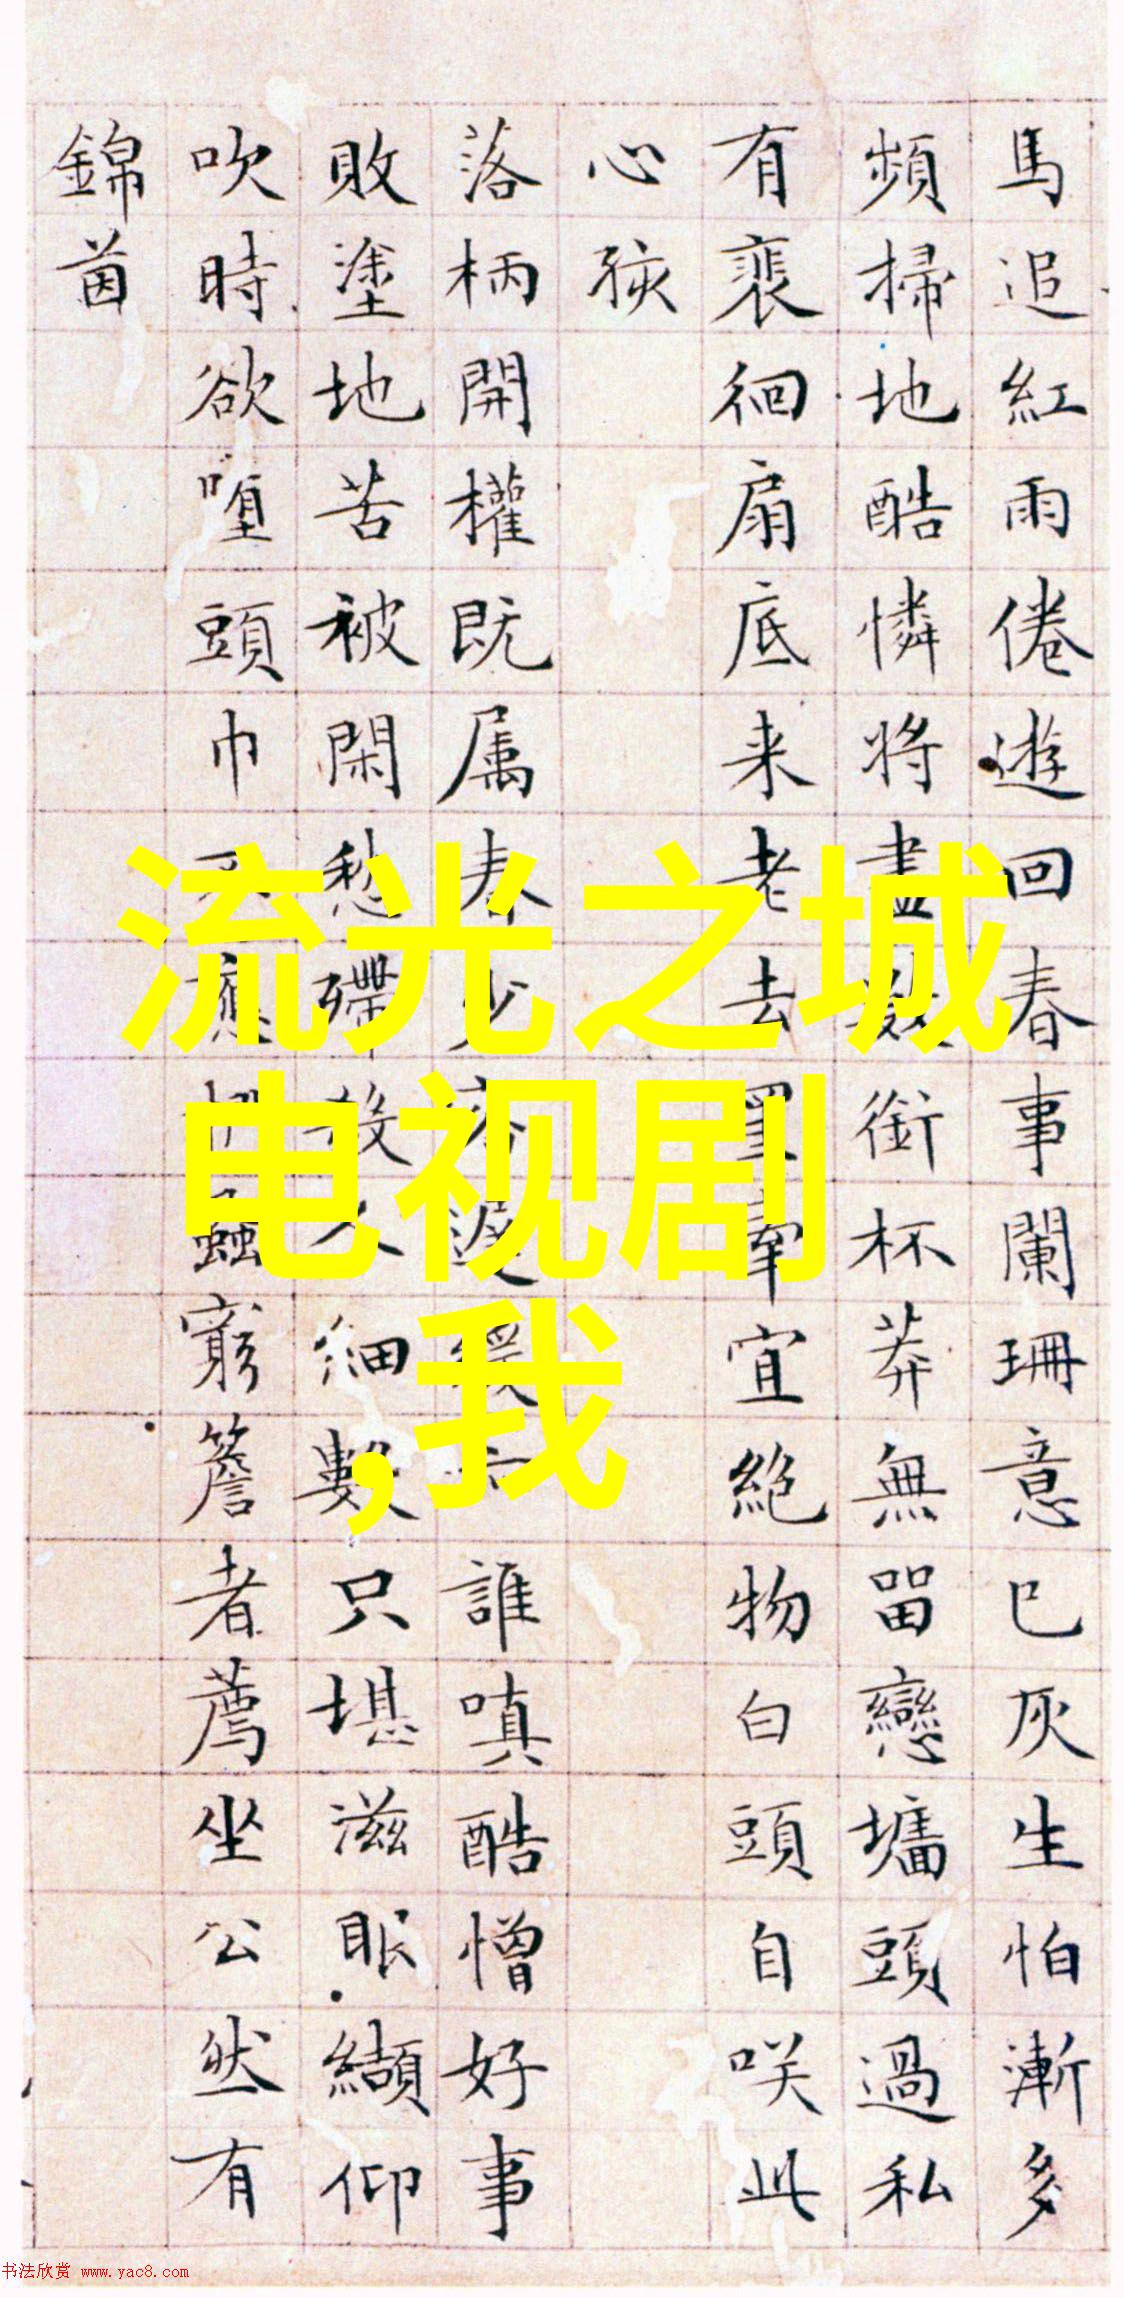 馬追紅雨倦遊回春事闌珊意已灰生怕漸多
頻掃地酷憐將盡數銜杯莽無留戀墉頭過私
有裵徊扇底来老去宜絶物白頭自咲此
心孩
落柄開權既属春誰嗔酷憎好事
敗塗地苦被閑愁殢細數只堪滋眠纈仰
吹時欲墮頭巾蟲窮簷者薦坐公然有
錦茵
流光之城
电视剧
,我
书法欣赏 www.yac8.com